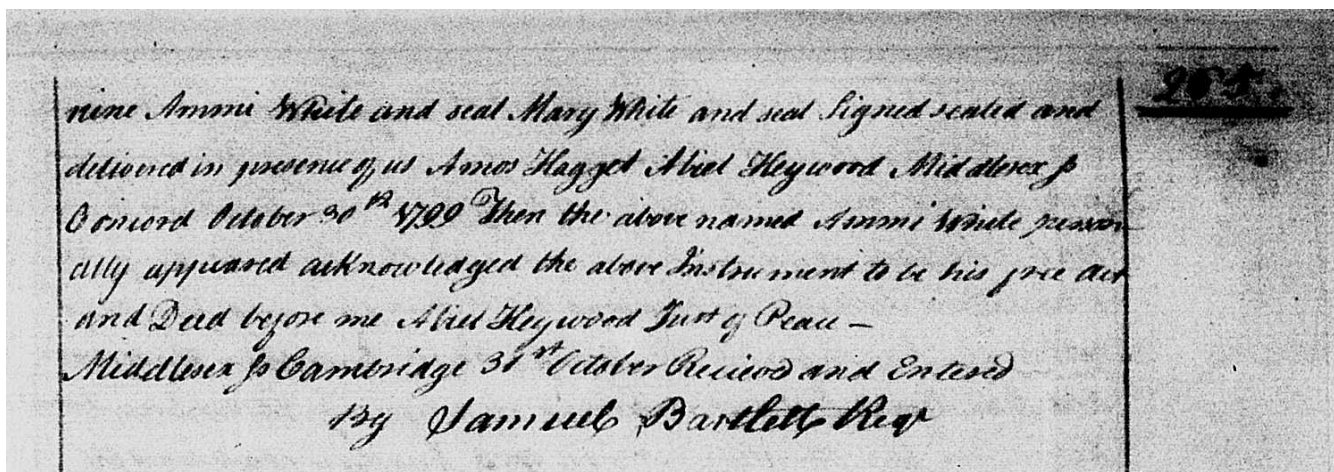 265.
nine Ammi White and seal Mary White and seal Signed sealed and
delivered in presence of us Amos Hagget Abiel Heywood Middlesex ss
Concord October 30th 1799 Then the above named Ammi White person
ally appeared acknowledged the above Instrument to be his free Act
and Deed before me Abiel Heywood Just of Peace —
Middlesex ss Cambridge 31st October Recieved and Entered
By Samuel Bartlett Regr